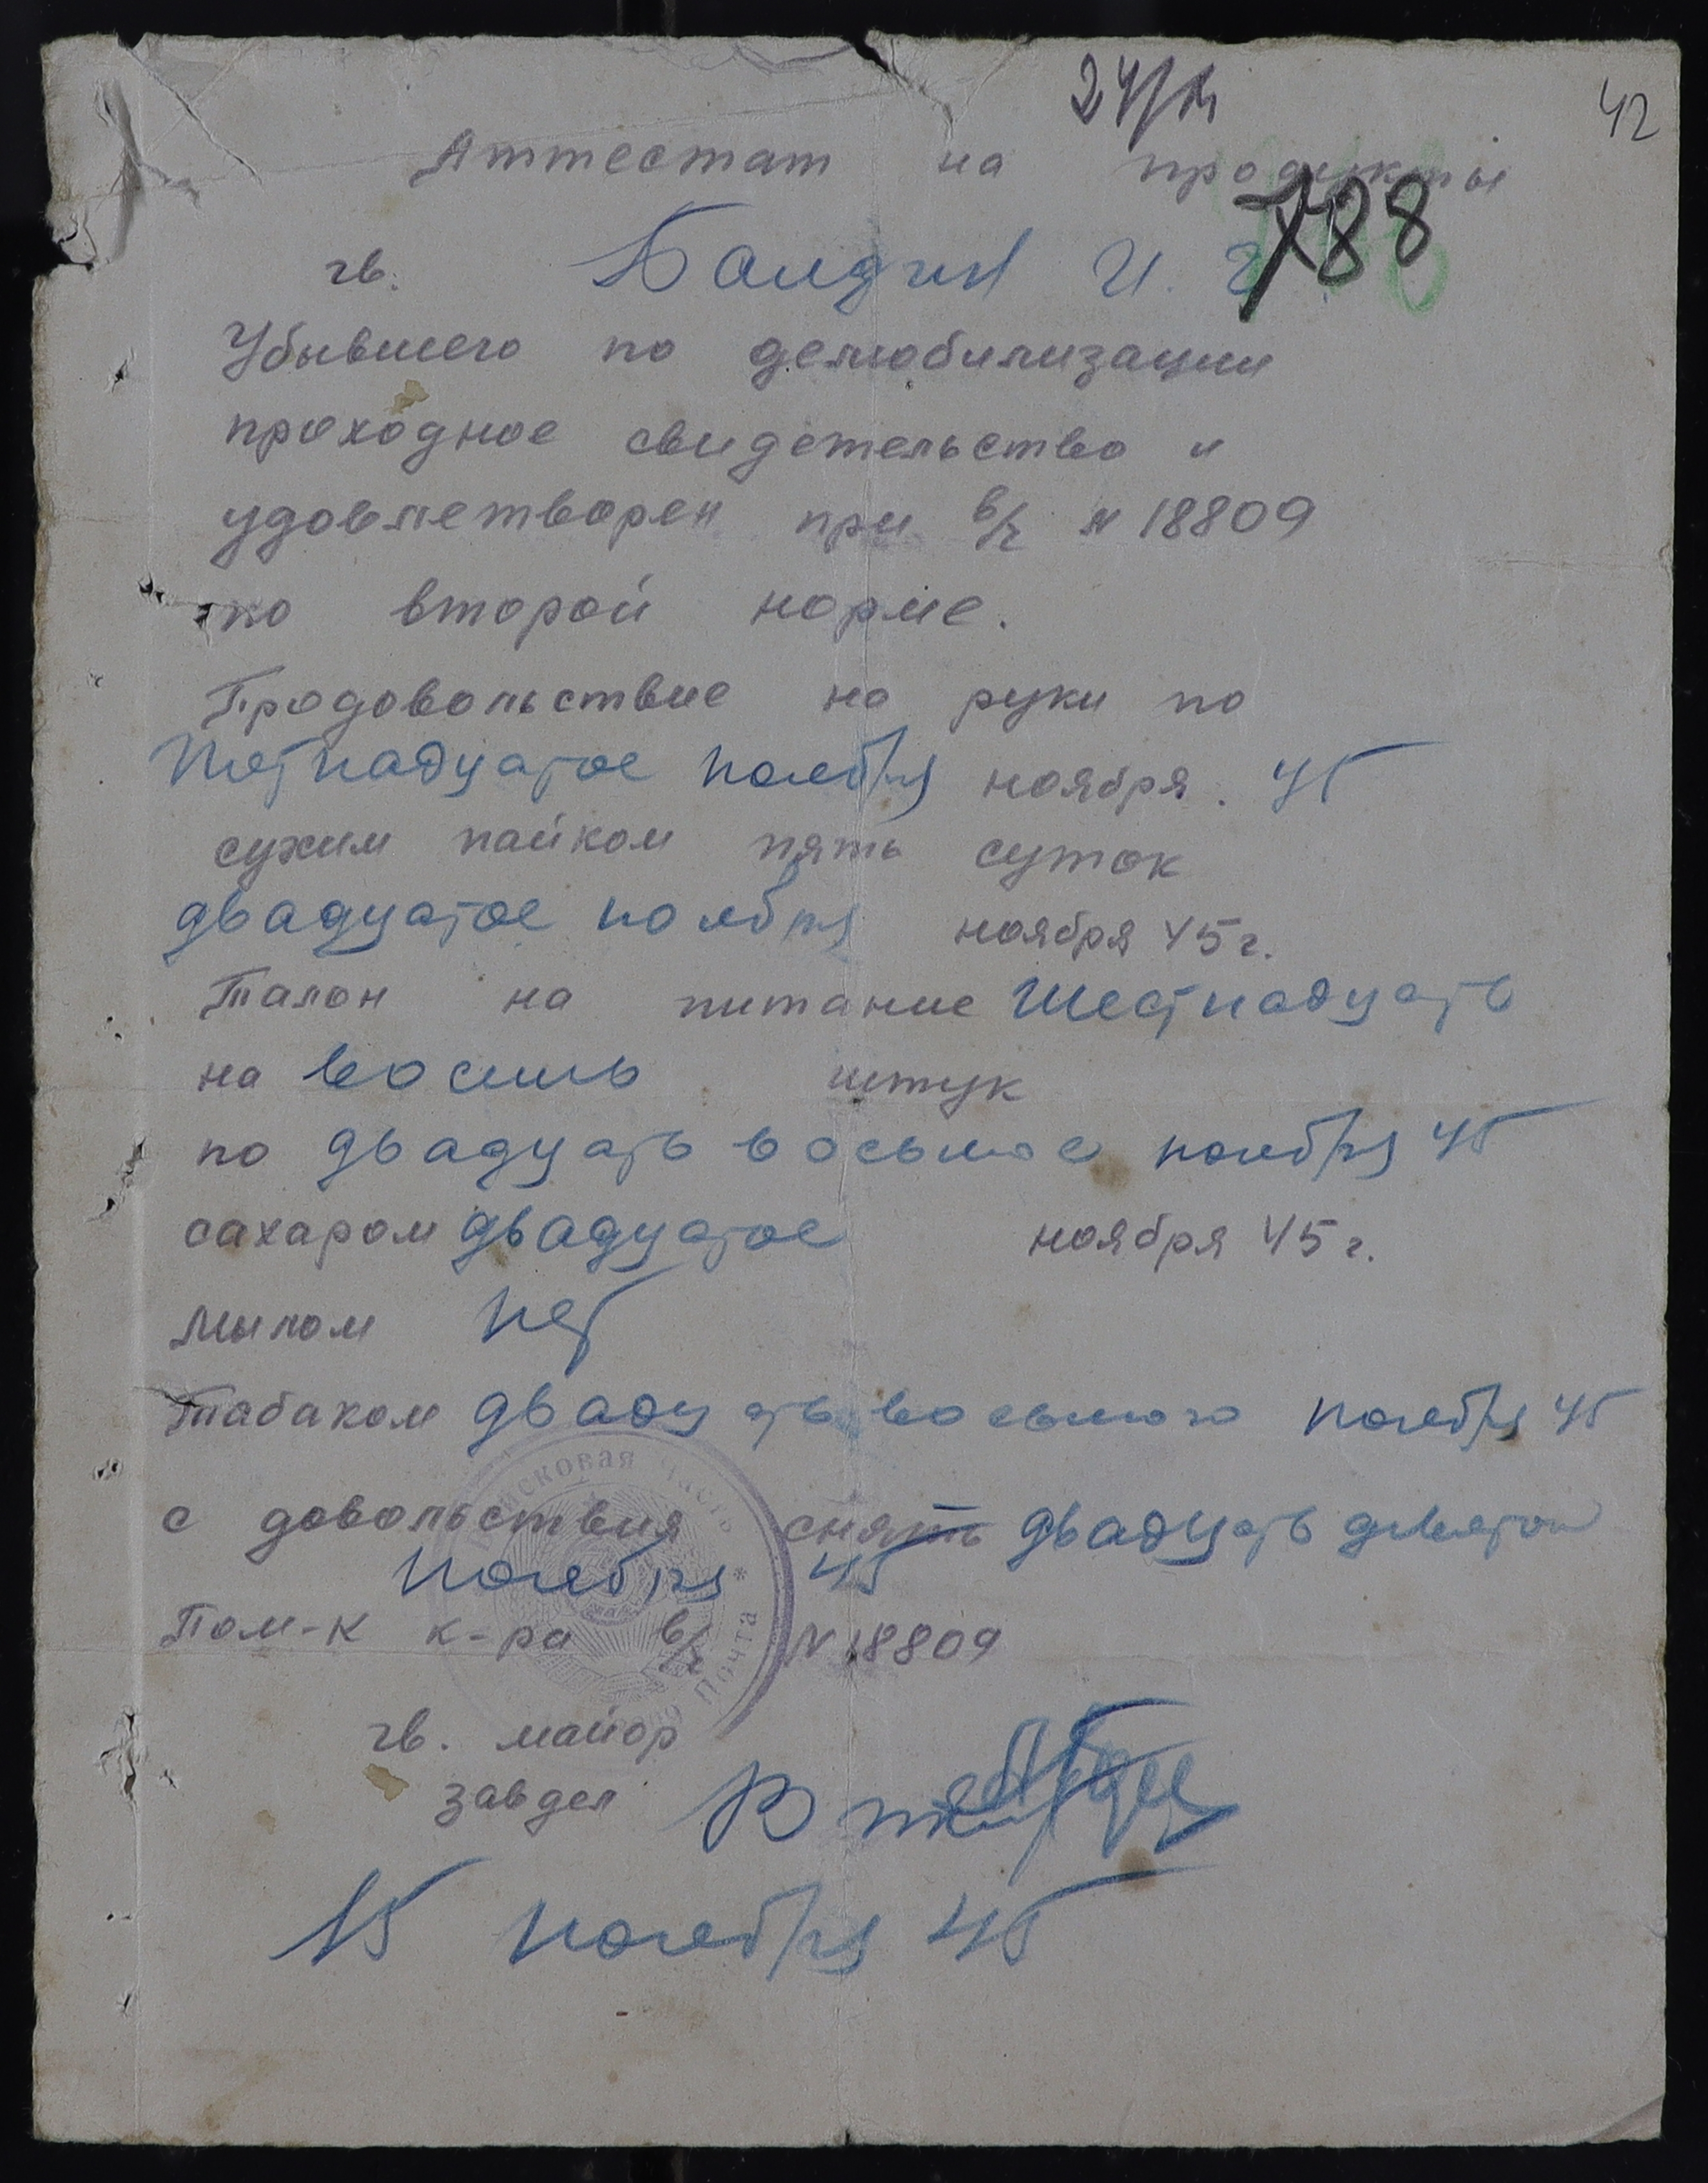 42
Аттестат на продукты
788
гв. Балдин И.
Убывшего по демобилизации
проходное свидетельство и
удовлетворен при в/ч N 18809
по второй норме.
Продовольствие на руки по
Петнадцатое ноября ноября. 45
сухим пайком пять суток
двадцатое ноября ноября 45 г.
Талон на питание шестнадцать
на восемь штук
по двадцать восьмое ноября 45
сахаром двадцатое ноября 45 г.
мылом нет
табаком двадцать восьмого ноября 45
с довольствия снять двадцать девятого
ноября 45
Пом-к к-ра в/ч N 18809
Войсковая часть * Почта
гв. майор
завдел
15 ноября 45